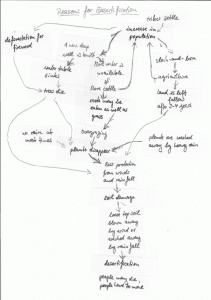 Reasons for Desertification
tribes settle
deforestation for
firewood
increase in
population
A new deep
well is built
More water is
available
slash-and-burn
agriculture
water table
sinks
More cattle
land is left
fallow
after 3-4 years
trees die
roots may be
eaten as well as
grass
overgrazing
no rain at
most times
plants disappear
plants are washed
away by heavy rain
less protection
from winds
and rainfall
soil damage
loose top soil
blown away
by wind or
washed away
by rainfall
desertification
people may die,
people have to move